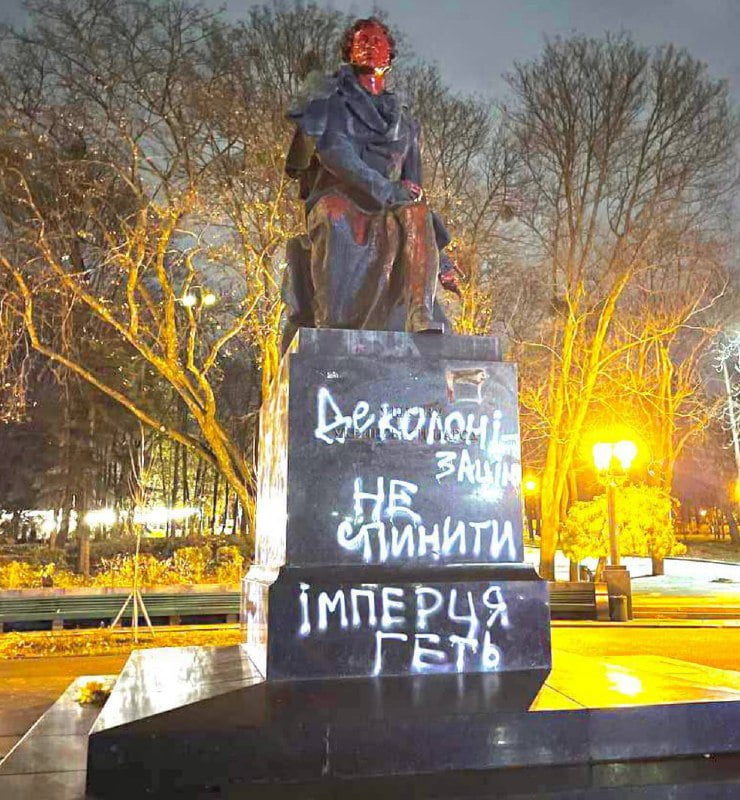 Деколоні-
ЗАЦІЮ
НЕ
СПИНИТИ
ІМПЕРЦЯ
ГЕТЬ